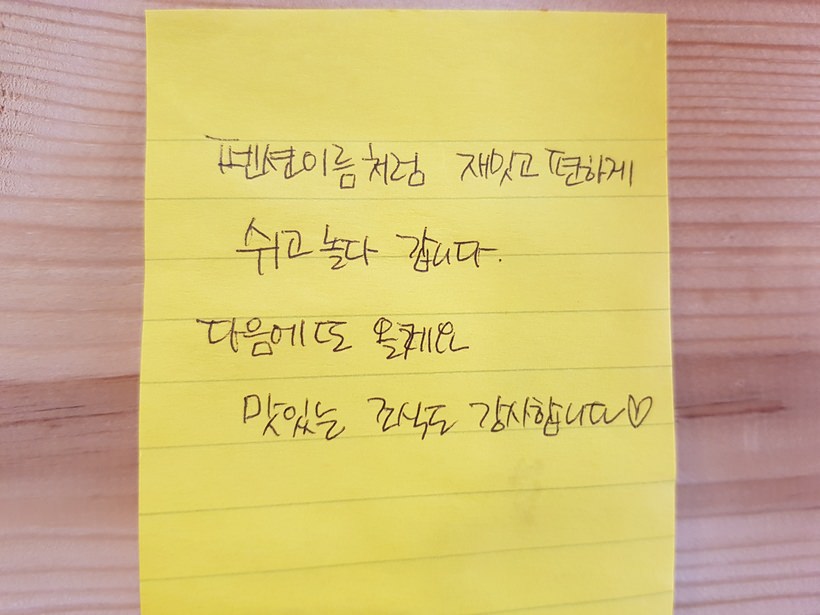 펜션이름처럼 재밌고 편하게
쉬고 놀다 갑니다.
다음에 또 올께요
맛있는 조식도 감사합니다♡